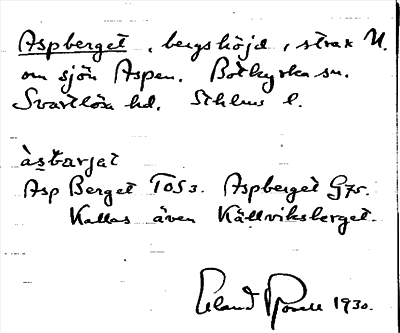 Aspberget, bergshöjd, strax N.
om sjön Aspen. Botkyrka sn.
Svartlösa hd. Sthlms l.
àsbarjat
Asp Berget TOS 3. Aspberget G75.
Kallas även Källviksberget.
Erland Rosell 1930.